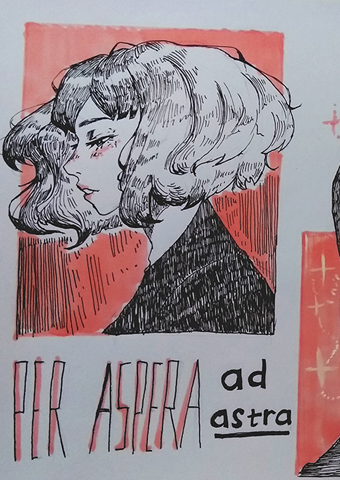 PER ASPERA ad
astra